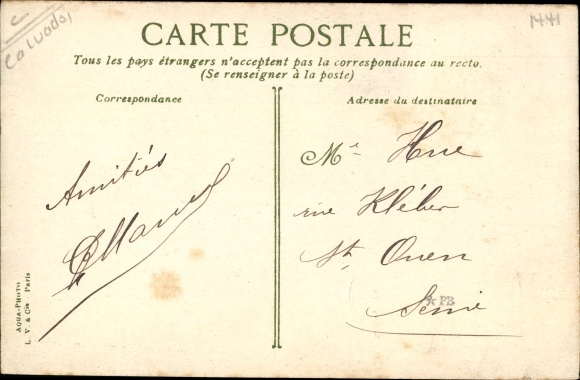 Calvados
1441
CARTE POSTALE
Tous les pays étrangers n'acceptent pas la correspondance au recto.
(Se renseigner à la poste)
Correspondance
Amitiés
Adresse du destinataire
Mr Hue
rue Kléber
St. Ouen
Seine
PB
AQUA-PHOTO
L. V. & Cie Paris